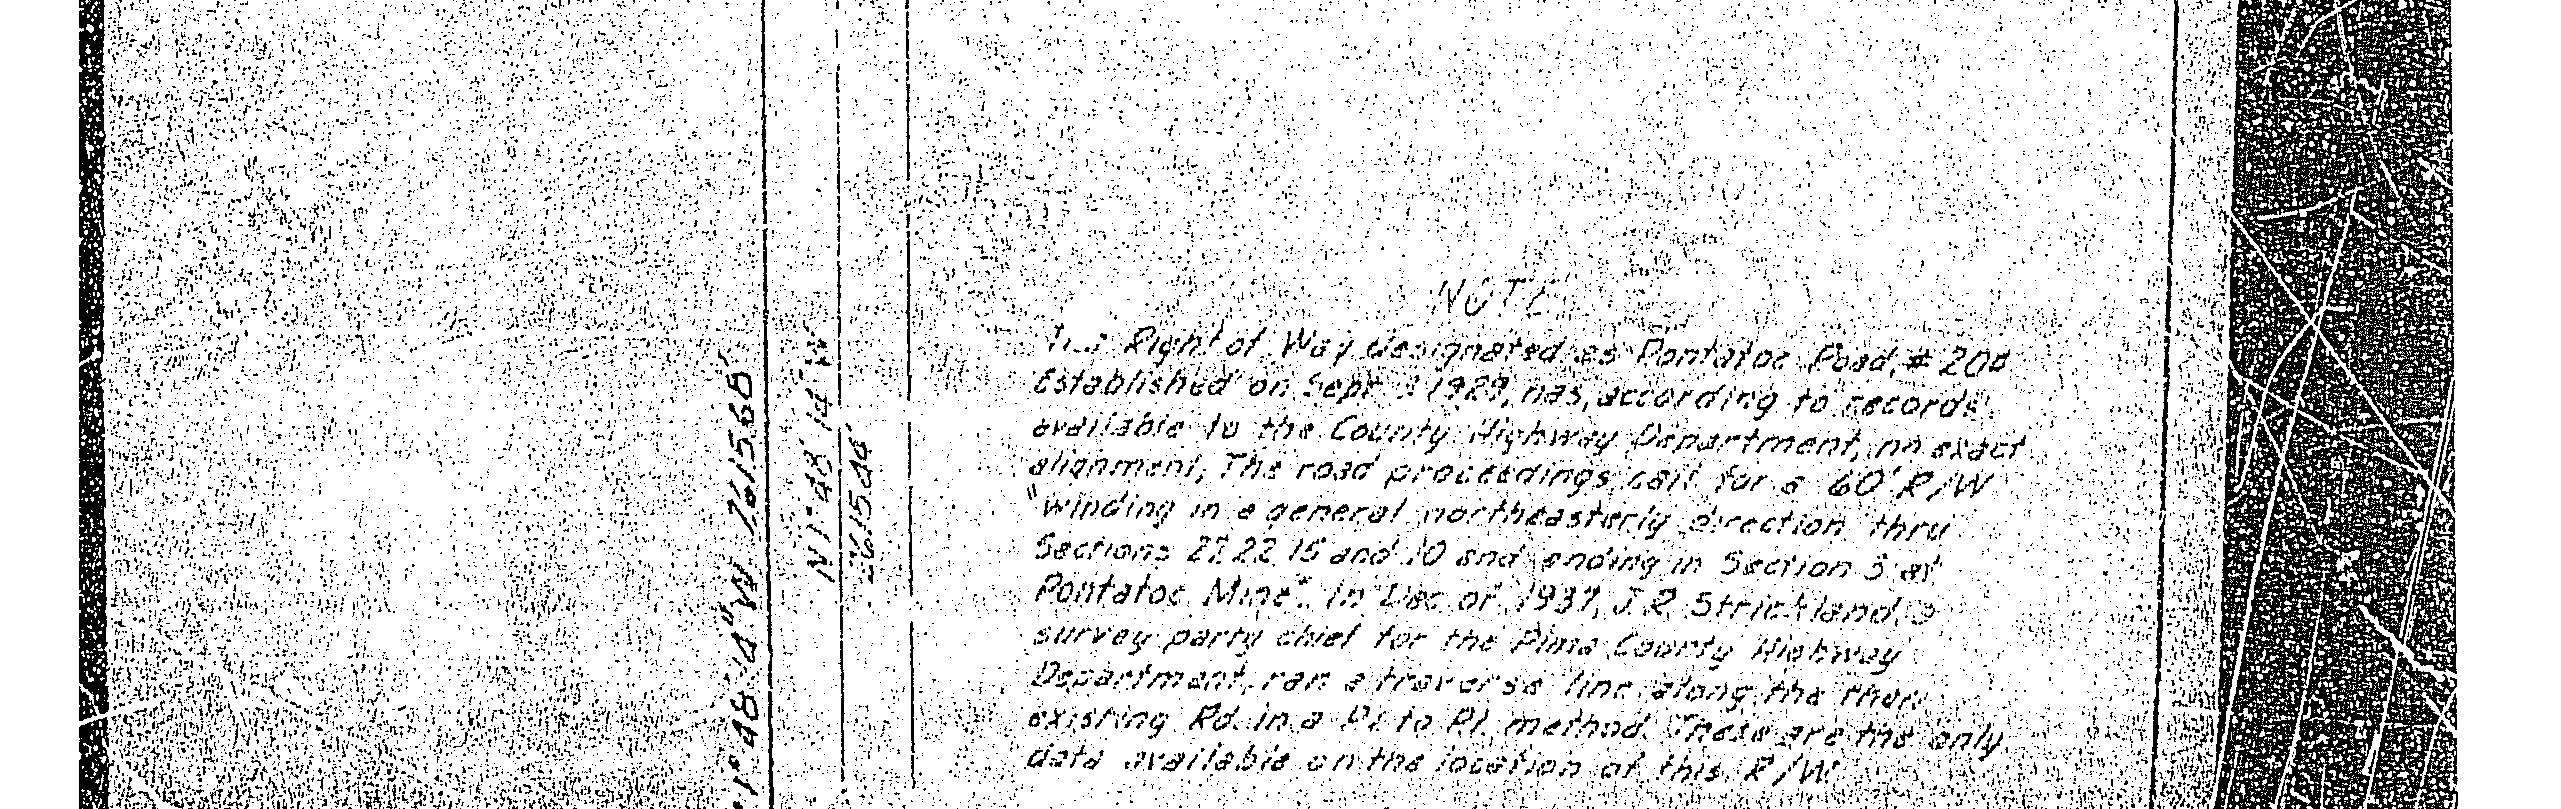 NOTE
This Right of Way designated as Pontatoc Road, # 204
Established on Sept 1929, has, according to records
available to the County Highway Department, no exact
alignment, The road proceedings call for a 60' R/W
"winding in a general northeasterly direction thru
Sections 27 22 15 and 10 and ending in Section 3 at
Pontatoc Mine". In Dec of 1937, J.R. Strickland, a
survey party chief for the Pima County Highway
Department, ran a traverse line along the then
existing Rd. in a P.I. to P.I. method. These are the only
data available on the location of this R/W.
N 1° 48' 14" W
2615.44'
1° 48' 14" W 2615.68'